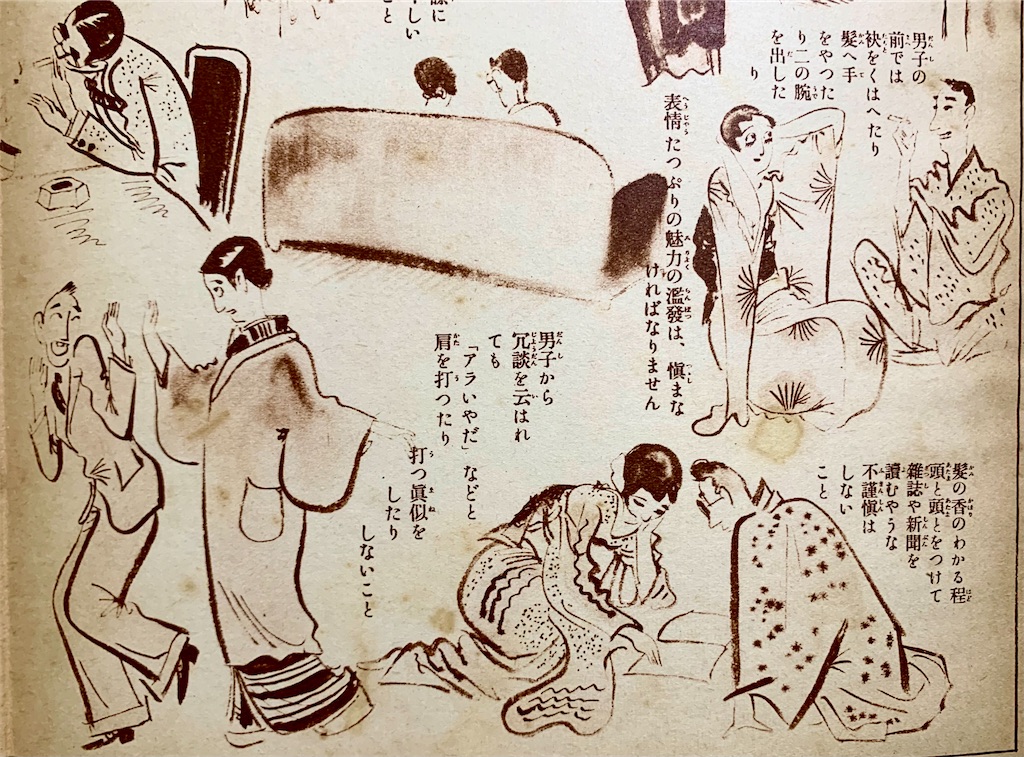 男子の
前では
袂をくはへたり
髪へ手
をやつた
り二の腕
を出した
り
表情たつぷりの魅力の濫發は、愼まな
ければなりません
男子から
冗談を云はれ
ても
「アラいやだ」などと
肩を打つたり
打つ眞似を
したり
しないこと
髪の香のわかる程
頭と頭とをつけて
雜誌や新聞を
讀むやうな
不謹愼は
しない
こと